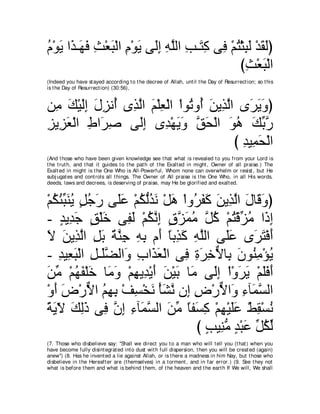 (لَقَدْ لَبِثْتُمْ فِى كِتَـبِ اللَّهِ إِلَى يَوْمِ الْبَعْثِ فَهَـذَا يَوْمُ
الْبَعْثِ)
(Indeed you have stayed according to the decree of Allah, until the Day of Resurrection; so this
is the Day of Resurrection) (30:56),
(وَيَرَى الَّذِينَ أُوتُواْ الْعِلْمَ الَّذِى أُنزِلَ إِلَيْكَ مِن
رَّبِّكَ هُوَ الْحَقَّ وَيَهْدِى إِلَى صِرَاطِ الْعَزِيزِ
الْحَمِيدِ )
(And those who have been given knowledge see that what is revealed to you from your Lord is
the truth, and that it guides to the path of the Exalted in might, Owner of all praise.) The
Exalted in might is the One Who is All-Powerful, Whom none can overwhelm or resist, but He
subjugates and controls all things. The Owner of All praise is the One Who, in all His words,
deeds, laws and decrees, is deserving of praise, may He be glorified and exalted.
(وَقَالَ الَّذِينَ كَفَرُواْ هَلْ نَدُلُّكُمْ عَلَى رَجُلٍ يُنَبِّئُكُمْ
إِذَا مُزِّقْتُمْ كُلَّ مُمَزَّقٍ إِنَّكُمْ لَفِى خَلْقٍ جَدِيدٍ -
أَفْتَرَى عَلَى اللَّهِ كَذِباً أَم بِهِ جِنَّةٌ بَلِ الَّذِينَ لاَ
يُؤْمِنُونَ بِالاٌّخِرَةِ فِى الْعَذَابِ وَالضَّلَـلِ الْبَعِيدِ -
أَفَلَمْ يَرَوْاْ إِلَى مَا بَيْنَ أَيْدِيهِمْ وَمَا خَلْفَهُمْ مِّنَ
السَّمَآءِ وَالاٌّرْضِ إِن نَّشَأْ نَخْسِفْ بِهِمُ الاٌّرْضَ أَوْ
نُسْقِطْ عَلَيْهِمْ كِسَفاً مِّنَ السَّمَآءِ إِنَّ فِى ذَلِكَ لأَيَةً
لِّكُلِّ عَبْدٍ مُّنِيبٍ )
(7. Those who disbelieve say: "Shall we direct you to a man who will tell you (that) when you
have become fully disintegrated into dust with full dispersion, then you will be created (again)
anew") (8. Has he invented a lie against Allah, or is there a madness in him Nay, but those who
disbelieve in the Hereafter are (themselves) in a torment, and in far error.) (9. See they not
what is before them and what is behind them, of the heaven and the earth If We will, We shall